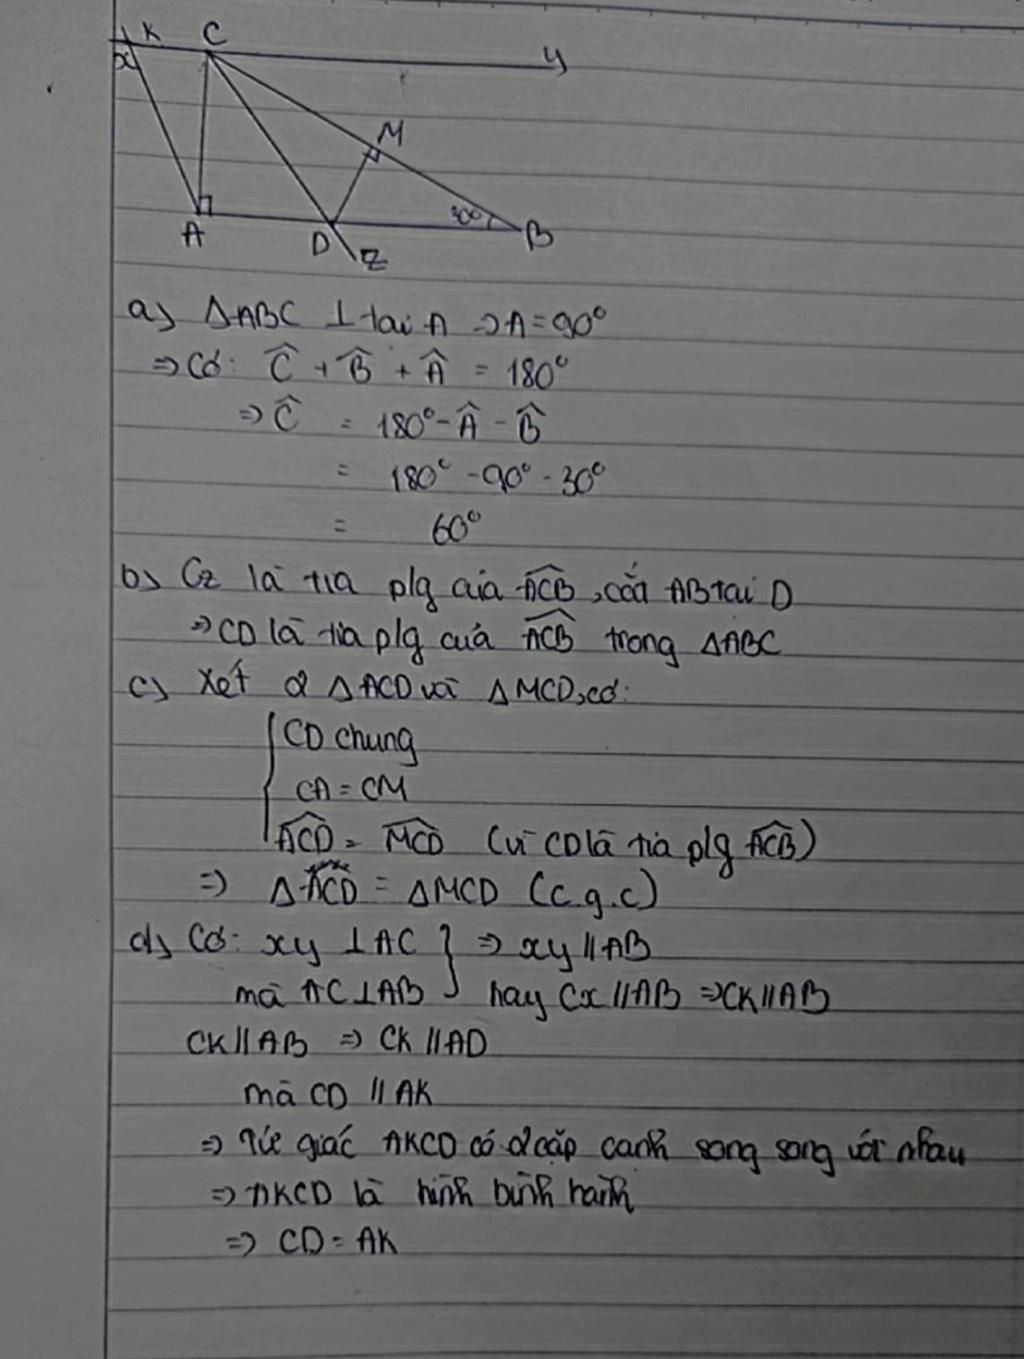 K C
x y
M
30° B
A D z
a) ΔABC ⊥ tai A => A = 90°
=> Có: Ĉ + B̂ + Â = 180°
=> Ĉ = 180° - Â - B̂
= 180° - 90° - 30°
= 60°
b) Cz là tia plg của ACB̂, cắt AB tai D
=> CD là tia plg của ACB̂ trong ΔABC
c) Xét 2 ΔACD và ΔMCD, có:
CD chung
CA = CM
ACD̂ = MCD̂ (vì CD là tia plg ACB̂)
=> ΔACD = ΔMCD (c.g.c)
d) Có: xy ⊥ AC } => xy // AB
mà AC ⊥ AB } hay Cx // AB => CK // AB
CK // AB => CK // AD
mà CD // AK
=> Tứ giác AKCD có 2 cặp canh song song với nhau
=> AKCD là hình bình hành
=> CD = AK